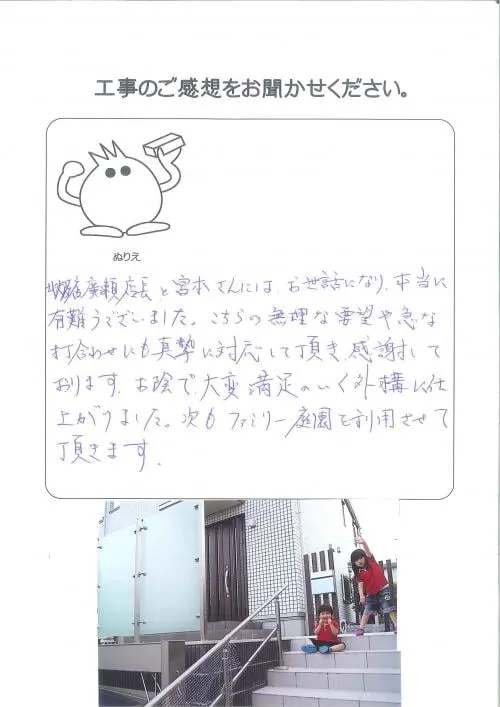 工事のご感想をお聞かせください。
ぬりえ
店長と宮本さんには お世話になり、本当に
有難うございました。こちらの無理な要望や急な
打合わせにも真摯に対応して頂き、感謝して
おります。お陰で、大変満足のいく外構に仕
上がりました。次も ファミリー庭園を利用させて
頂きます。